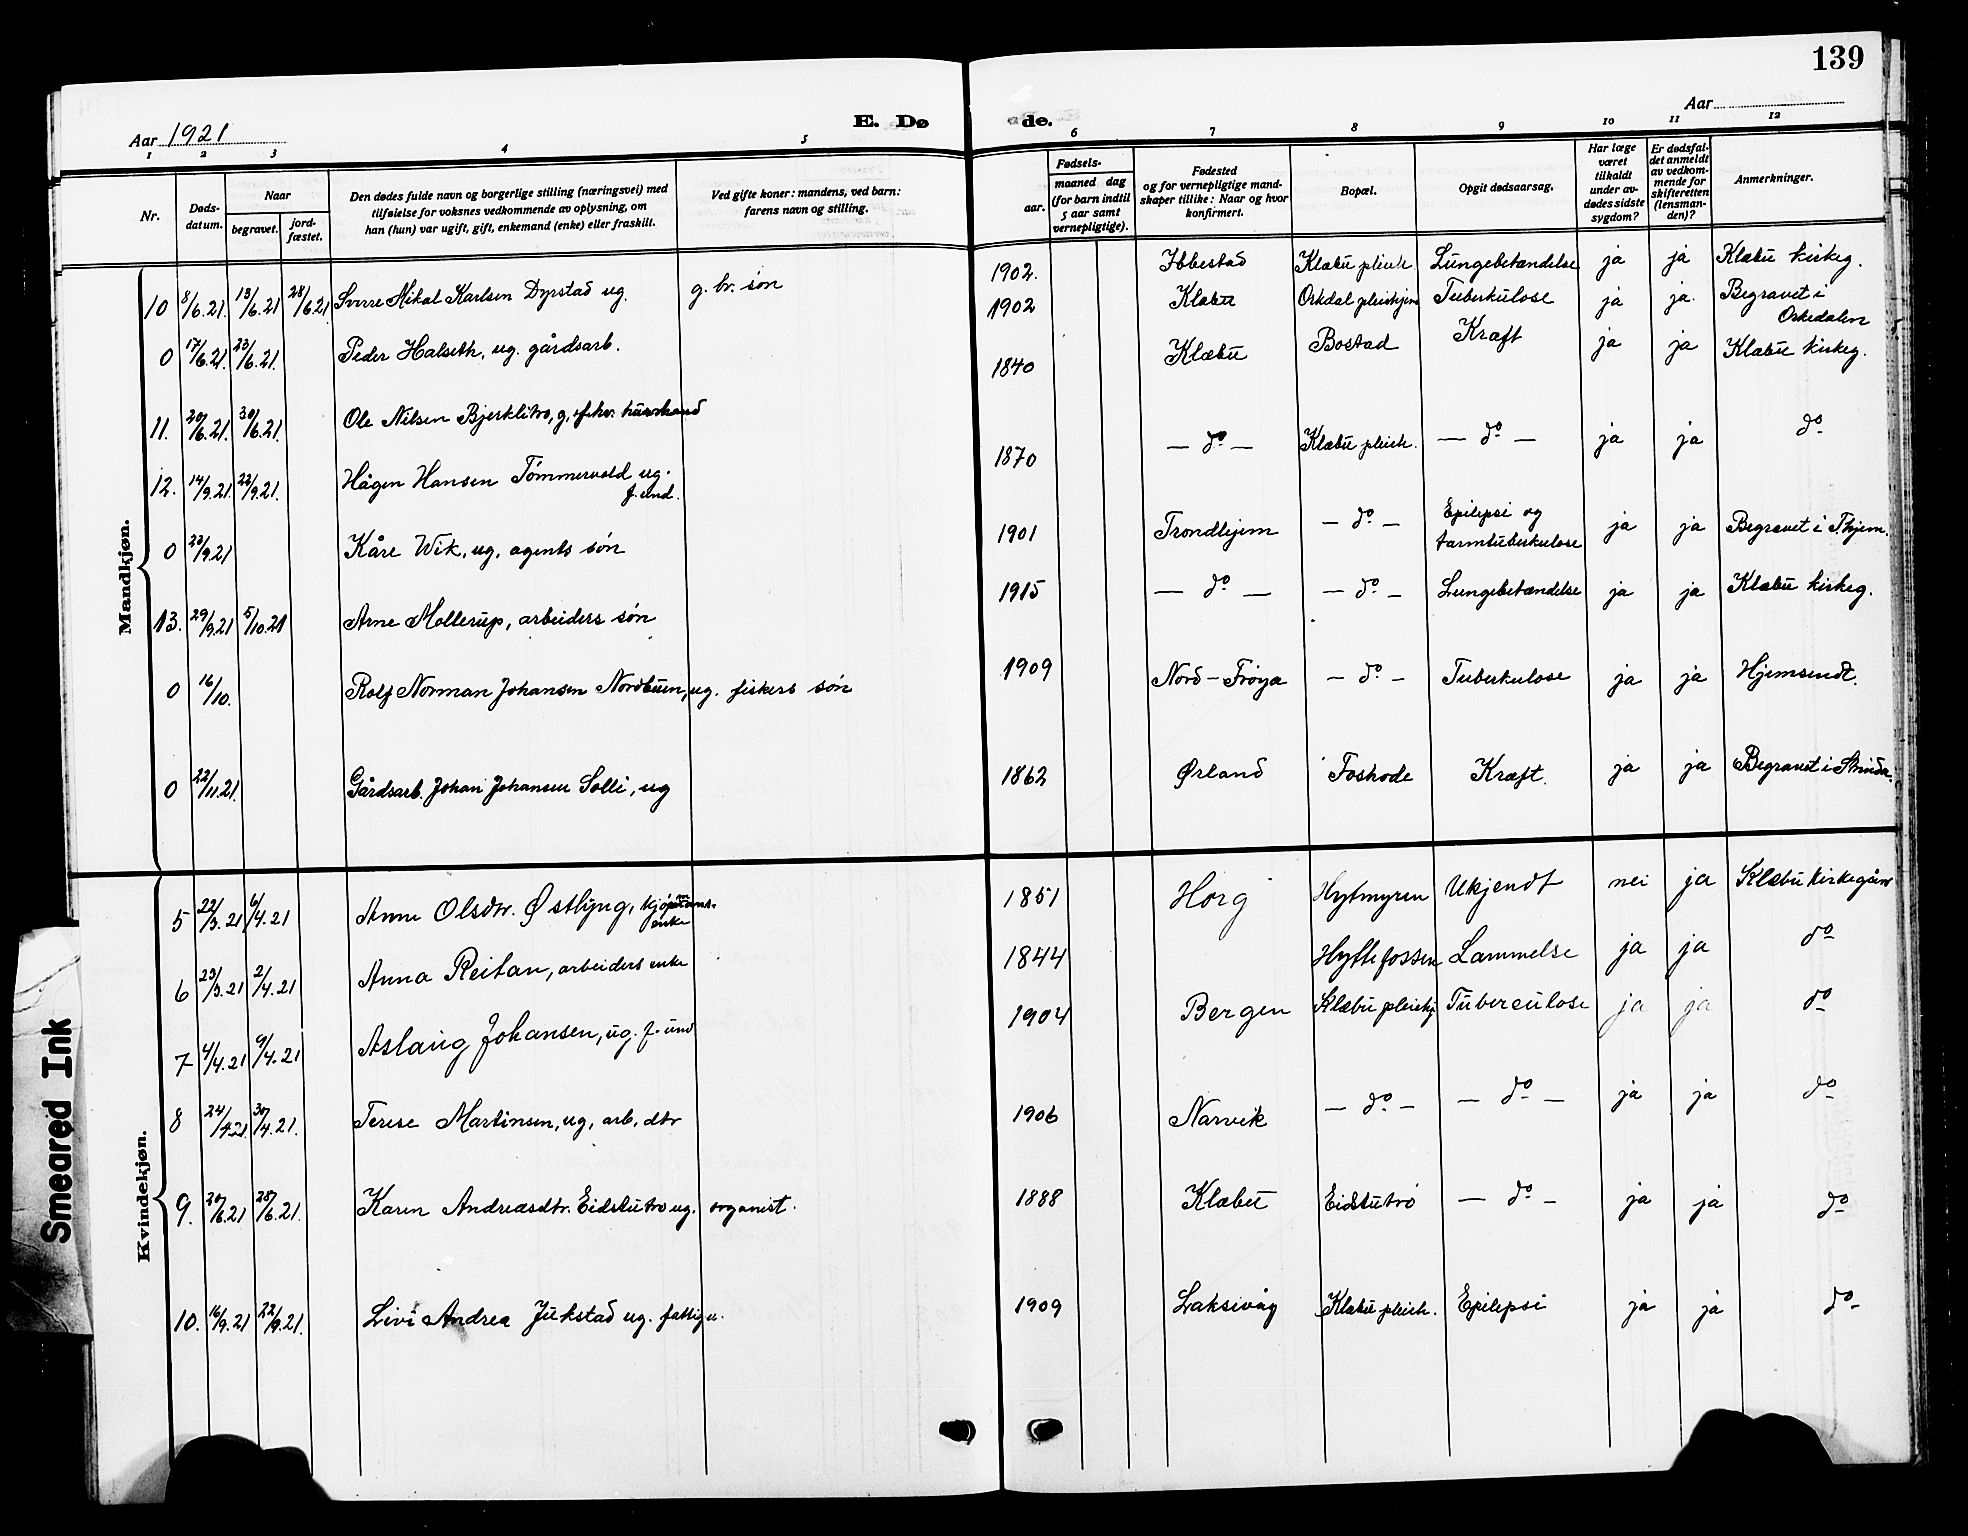 139
Aar 1921
E. Dø
de.
Aar
1 2 3 4 5 6 7 8 9 10 11 12
Nr.
Døds-
datum.
Naar
begravet.
jord-
fæstet.
Den dødes fulde navn og borgerlige stilling (næringsvei) med
tilføielse for voksnes vedkommende av oplysning, om
han (hun) var ugift, gift, enkemand (enke) eller fraskilt.
Ved gifte koner: mandens, ved barn:
farens navn og stilling.
Fødsels-
aar.
maaned dag
(for barn indtil
5 aar samt
vernepligtige).
Fødested
og for vernepligtige mand-
skaper tillike: Naar og hvor
konfirmert.
Bopæl.
Opgit dødsaarsag.
Har læge
været
tilkaldt
under av-
dødes sidste
sygdom?
Er dødsfal-
det anmeldt
av vedkom-
mende for
skifteretten
(lensman-
den)?
Anmerkninger.
Mandkjøn.
10 8/6.21. 13/6.21 28/6.21 Sverre Mikal Karlsen Dyrstad ug. g. br. søn 1902. Ibbestad Klæbu pleieh. Lungebetændelse ja ja Klæbu kirkeg.
0 17/6.21. 23/6.21. Peder Halseth, ug. gårdsarb. 1902 Klæbu Orkdal pleiehjem Tuberkulose ja ja. Begravet i
Orkedalen
11. 20/6.21. 30/6.21. Ole Nilsen Bjerklitrø, g, husmand 1840 Klæbu Bostad Kræft ja ja Klæbu kirkeg.
12. 14/9.21. 22/9.21. Hågen Hansen Tømmervold ug.
f. und. 1870 — do — Klæbu pleieh. — do — ja ja do
0 23/9.21 Kåre Wik, ug, agents søn 1901 Trondhjem — do — Epilepsi og
tarmtuberkulose ja ja Begravet i Thjem.
13. 29/9.21 5/10.21 Arne Mollerup, arbeiders søn 1915 — do — — do — Lungebetændelse ja ja Klæbu kirkeg.
0 16/10. Rolf Norman Johansen Nordbuen, ug. fiskers søn 1909 Nord-Frøya — do — Tuberkulose ja ja Hjemsendt.
0 22/11.21. Gårdsarb. Johan Johansen Solli, ug 1862 Ørland Foshode Kræft. ja ja Begravet i Strinda.
Kvindekjøn.
5 22/3.21 6/4.21 Anne Olsdtr. Østlyng,
enke 1851 Horg Hytmyren Ukjendt nei ja Klæbu kirkegård
6 23/3.21 2/4.21 Anna Reitan, arbeiders enke 1844 Hyttefossen Lammelse ja ja do
7 4/4.21 9/4.21 Aslaug Johansen, ug. f. und 1904 Bergen Klæbu pleiehj. Tuberculose ja ja do
8 24/4.21 30/4.21. Terese Martinsen, ug, arb. dtr 1906 Narvik — do — — do — ja ja do
9. 20/6.21 28/6.21. Karen Andreasdtr. Eidstutrø ug. organist. 1888 Klæbu Eidstutrø — do — ja ja do
10. 16/9.21 22/9.21. Livi Andrea Jukstad ug. fattigu. 1909 Laksivåg Klæbu pleieh. Epilepsi ja ja do
Smeared Ink